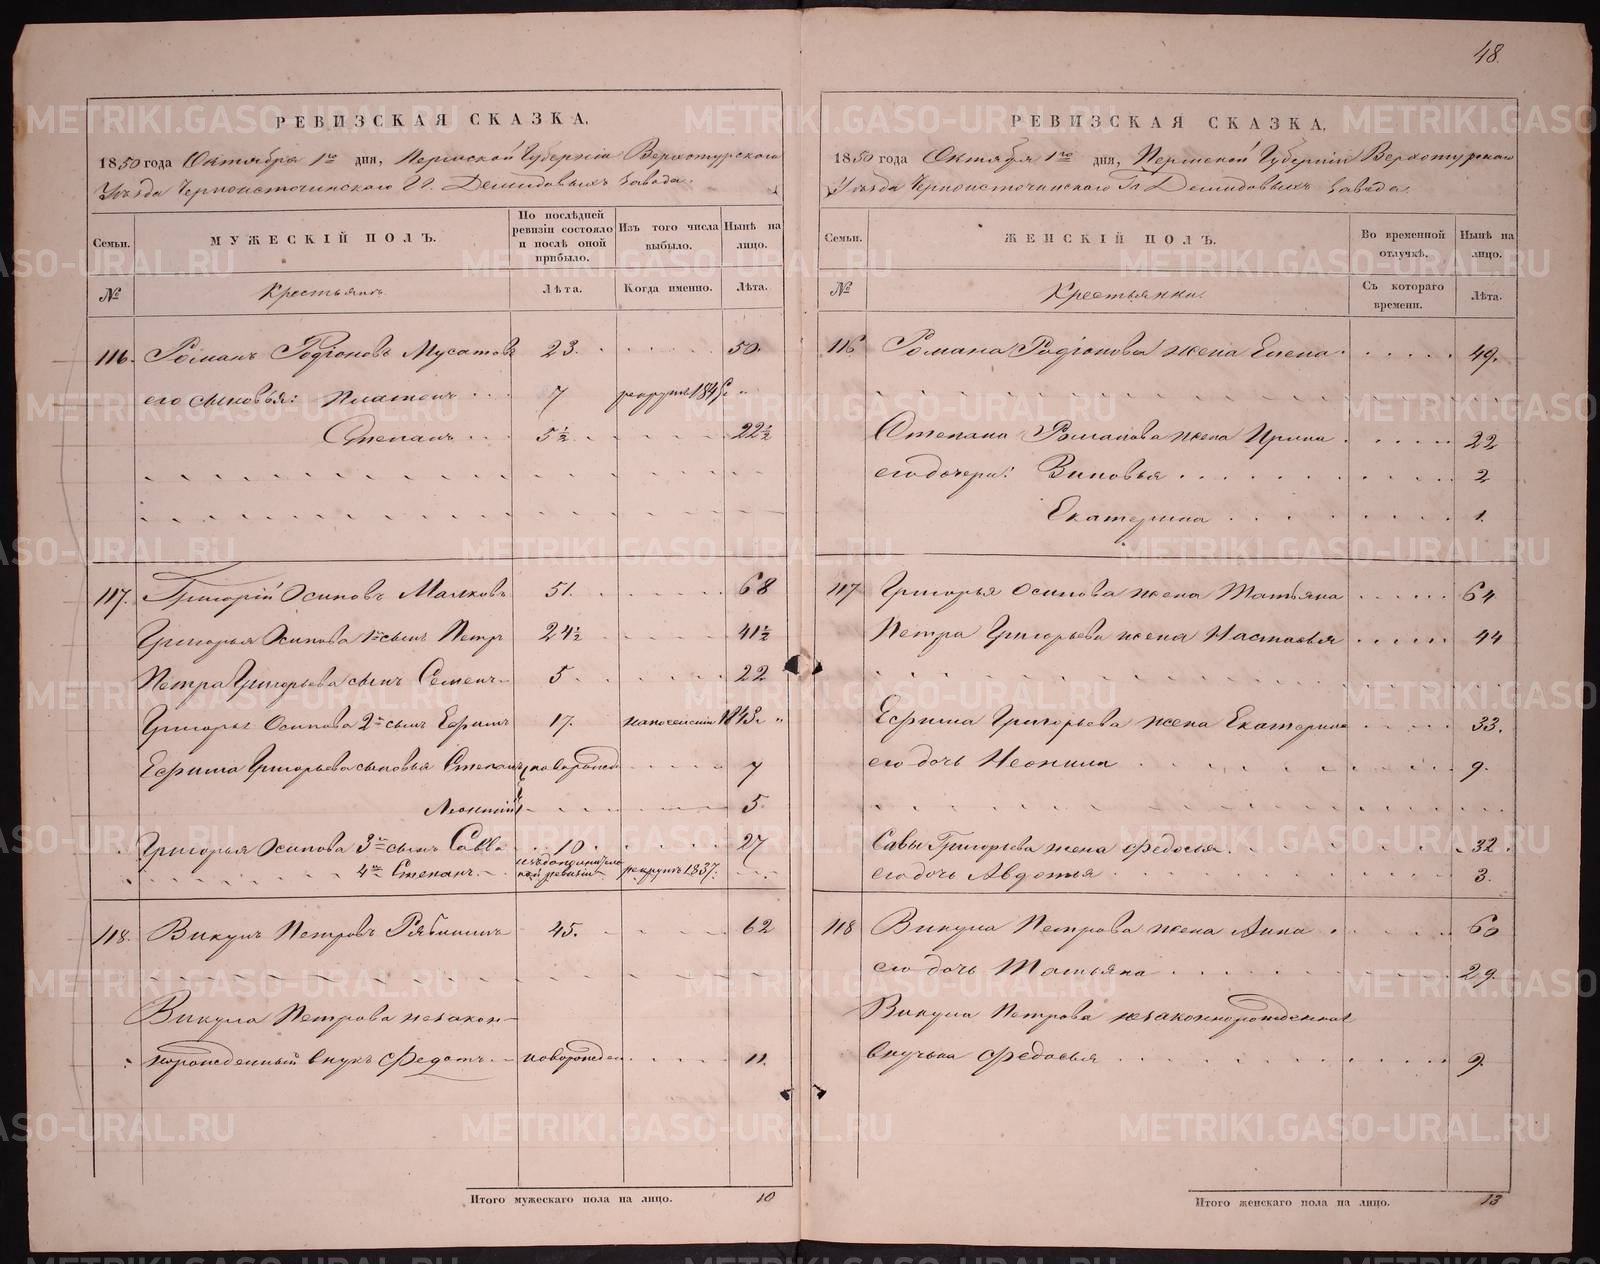 48.
РЕВИЗСКАЯ СКАЗКА.
1850 года Октября 1го дня, Пермской Губерніи Верхотурского
Уѣзда Черноисточинского Гг. Демидовыхъ завода.
Семьи.
МУЖЕСКІЙ ПОЛЪ.
По послѣдней ревизіи состояло и послѣ оной прибыло.
Изъ того числа выбыло.
Нынѣ на лицо.
№
Крестьянъ.
Лѣта.
Когда именно.
Лѣта.
116. Романъ Родіоновъ Мусатовъ 23. 50.
его сыновья: Платонъ 7 рекрутъ 184 г. „
Степанъ 5½ 22½
117. Григорій Осиповъ Малковъ 51. 68
Григорья Осипова 1й сынъ Петръ 24½ 41½
Петра Григорьева сынъ Семенъ 5 22
Григорья Осипова 2й сынъ Ефимъ 17. 184 „
Ефима Григорьева сыновья Степанъ новорожд 7
Леонтій 5
Григорья Осипова 3й сынъ Савва 10 27
4й Степанъ ревизіи рекрутъ 1837.
118. Викулъ Петровъ Рябининъ 45. 62
Викула Петрова незакон-
норожденный внукъ Федотъ новорожден 11.
Итого мужескаго пола на лицо. 10
РЕВИЗСКАЯ СКАЗКА.
1850 года Октября 1го дня, Пермской Губерніи Верхотурского
Уѣзда Черноисточинского Гг Демидовыхъ завода.
Семьи.
ЖЕНСКІЙ ПОЛЪ.
Во временной отлучкѣ.
Нынѣ на лицо.
№
Крестьянки.
Съ котораго времени.
Лѣта.
116 Романа Родіонова жена Елена 49.
Степана Романова жена Ирина 22
его дочери: Зиновья 2
Екатерина 1.
117 Григорья Осипова жена Татьяна 64
Петра Григорьева жена Настасья 44
Ефима Григорьева жена Екатерина 33.
его дочь Неонила 9.
Савы Григорьева жена Федосья 32.
его дочь Авдотья 3.
118 Викула Петрова жена Анна 60
его дочь Татьяна 29.
Викула Петрова незаконнорожденная
внучька Федосья 9.
Итого женскаго пола на лицо. 13
METRIKI.GASO-URAL.RU